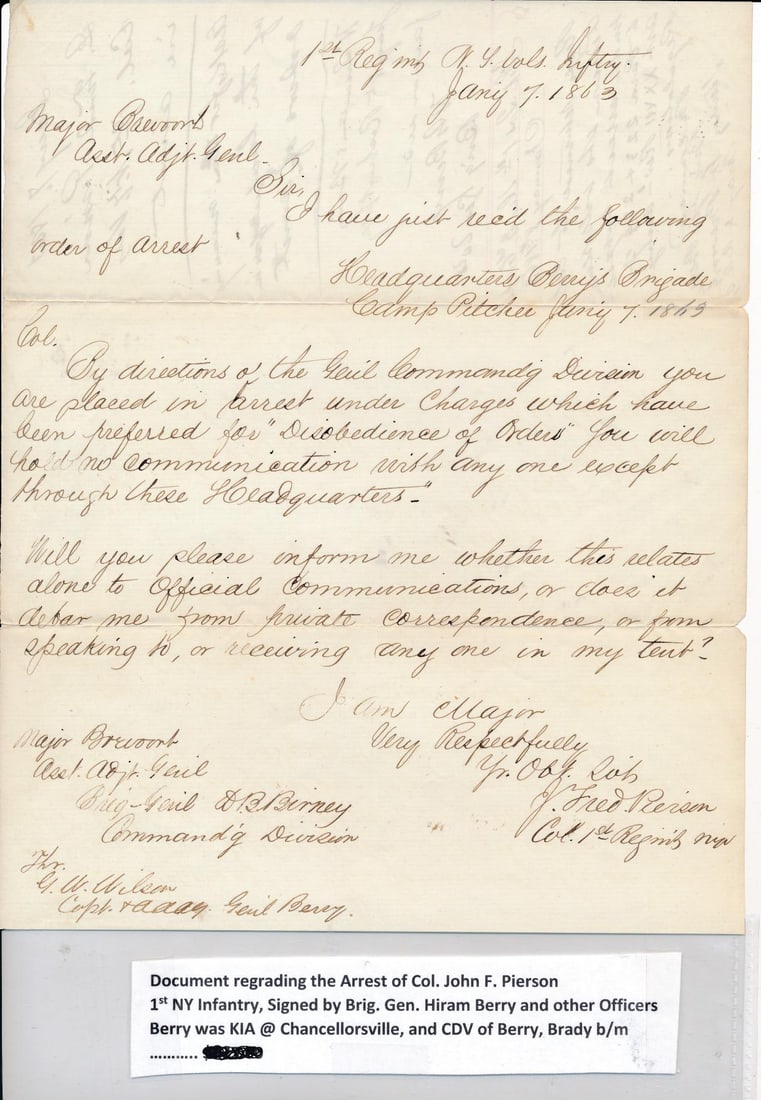 1st Regmt N. Y. Vols. Inftry.
Jany 7. 1863
Major Brevoort
Asst. Adjt. Genl.
Sir,
I have just rec'd the following
order of arrest
Headquarters Berry's Brigade
Camp Pitcher Jany 7. 1863
Col.
By directions of the Genl Commandg Division you
are placed in arrest under Charges which have
been preferred for "Disobedience of Orders" You will
hold no communication with any one except
through these Headquarters."
Will you please inform me whether this relates
alone to Official Communications, or does it
debar me from private correspondence, or from
speaking to, or receiving any one in my tent?
I am Major
Very Respectfully
Yr. Obt. Svt
J. Fred Pierson
Col. 1st Regmt NYV
Major Brevoort
Asst. Adjt. Genl
Brig-Genl D.B. Birney
Command'g Division
Thr.
G. W. Wilson
Capt. & AAAG. Genl Berry.
Document regrading the Arrest of Col. John F. Pierson
1st NY Infantry, Signed by Brig. Gen. Hiram Berry and other Officers
Berry was KIA @ Chancellorsville, and CDV of Berry, Brady b/m
...........